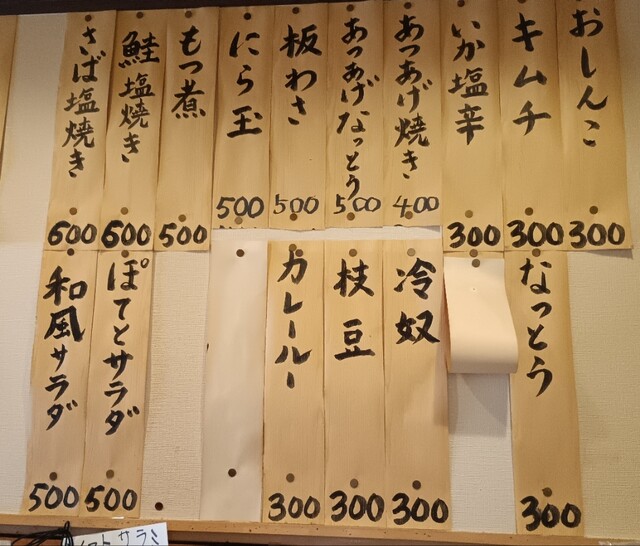 おしんこ 300
キムチ 300
いか塩辛 300
あつあげ焼き 400
あつあげなっとう 500
板わさ 500
にら玉 500
もつ煮 500
鮭塩焼き 600
さば塩焼き 600
なっとう 300
冷奴 300
枝豆 300
カレールー 300
ぽてとサラダ 500
和風サラダ 500